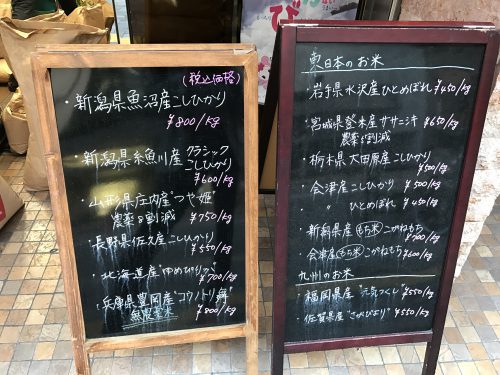 (税込価格)
・新潟県魚沼産こしひかり
¥800/kg
・新潟県糸魚川産 クラシック
こしひかり
¥600/kg
・山形県庄内産"つや姫"
農薬5割減 ¥750/kg
・長野県佐久産こしひかり
¥550/kg
・北海道産ゆめぴりか
¥700/kg
・兵庫県豊岡産"コウノトリ舞"
無農薬米 ¥800/kg
東日本のお米
・岩手県水沢産ひとめぼれ ¥450/kg
・宮城県登米産ササニシキ ¥650/kg
農薬5割減
・栃木県大田原産こしひかり
¥500/kg
・会津産こしひかり ¥500/kg
・〃 ひとめぼれ ¥450/kg
・新潟県産もち米こがねもち
¥700/kg
・会津産もち米こがねもち
¥600/kg
九州のお米
・福岡県産"元気つくし" ¥550/kg
・佐賀県産"さがびより" ¥550/kg